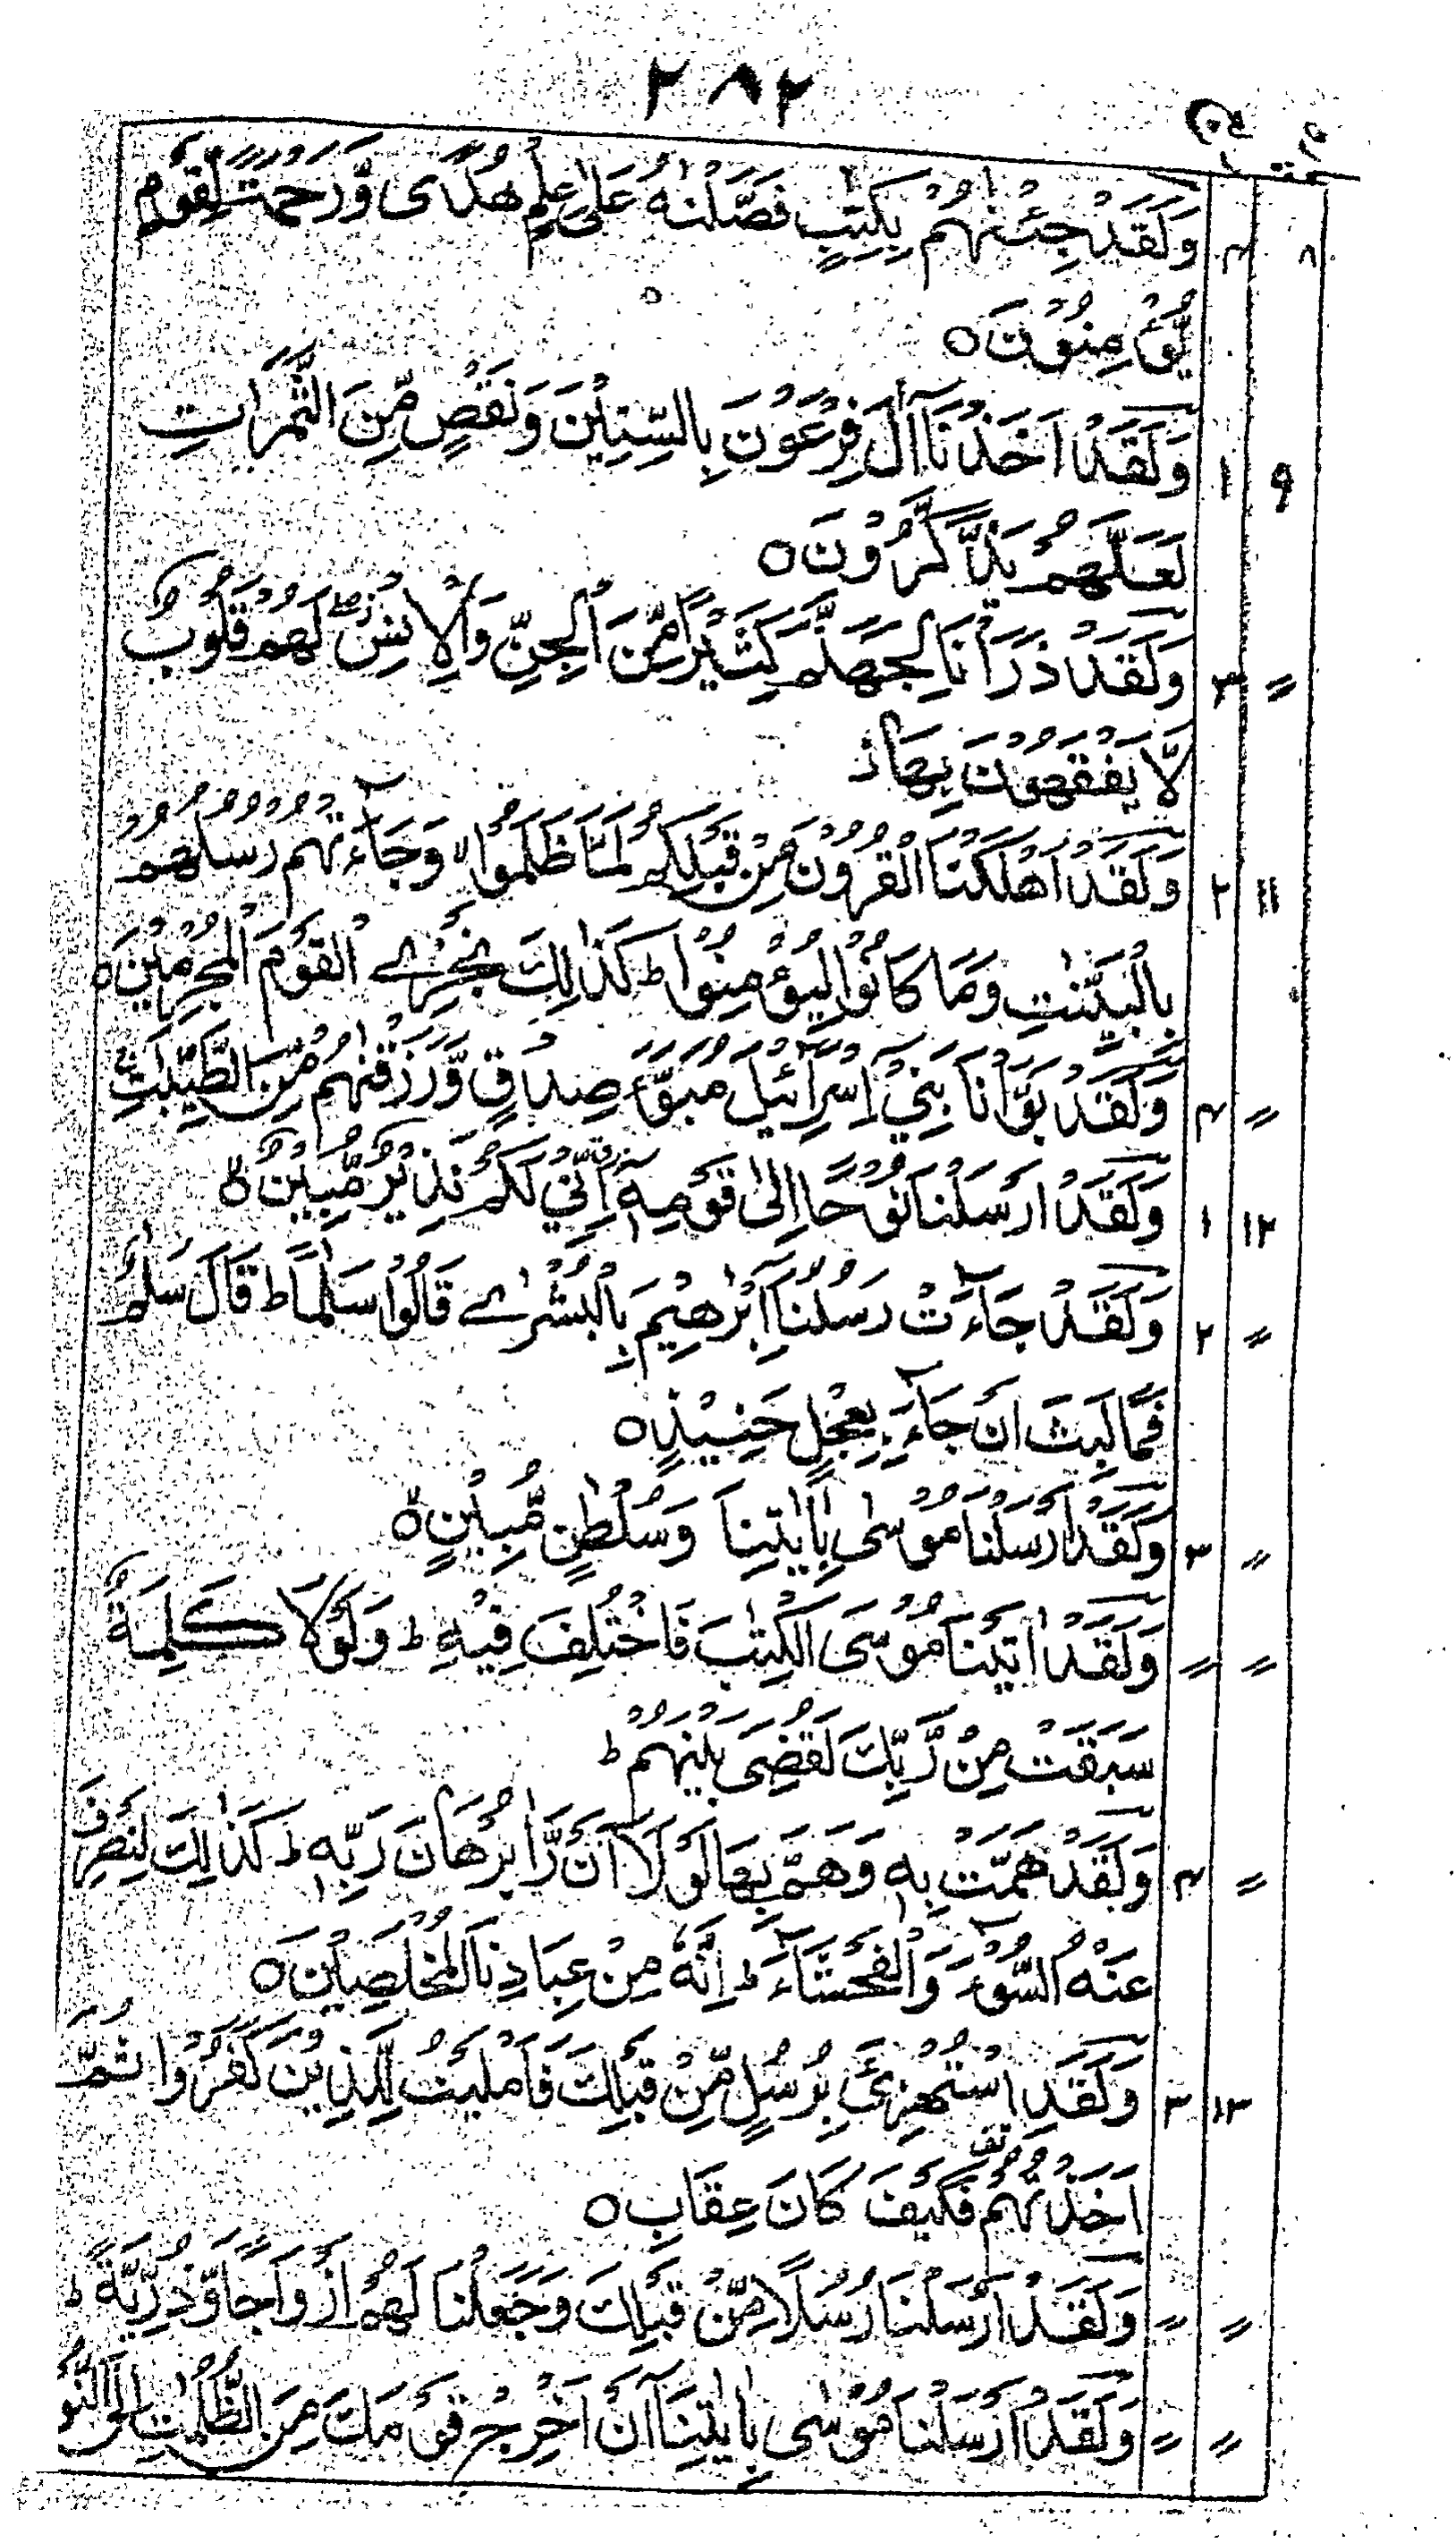 ۲۸۲
۸ ۴ وَلَقَدْ جِئْنٰهُمْ بِكِتٰبٍ فَصَّلْنٰهُ عَلٰى عِلْمٍ هُدًى وَّرَحْمَةً لِّقَوْمٍ
يُّؤْمِنُوْنَ ○
۹ ۱ وَلَقَدْ اَخَذْنَآ اٰلَ فِرْعَوْنَ بِالسِّنِيْنَ وَنَقْصٍ مِّنَ الثَّمَرٰتِ
لَعَلَّهُمْ يَذَّكَّرُوْنَ ○
〃 ۳ وَلَقَدْ ذَرَاْنَا لِجَهَنَّمَ كَثِيْرًا مِّنَ الْجِنِّ وَالْاِنْسِ ۖ لَهُمْ قُلُوْبٌ
لَّا يَفْقَهُوْنَ بِهَا ز
۱۱ ۲ وَلَقَدْ اَهْلَكْنَا الْقُرُوْنَ مِنْ قَبْلِكُمْ لَمَّا ظَلَمُوْا ۙ وَجَآءَتْهُمْ رُسُلُهُمْ
بِالْبَيِّنٰتِ وَمَا كَانُوْا لِيُؤْمِنُوْا ط كَذٰلِكَ نَجْزِے الْقَوْمَ الْمُجْرِمِيْنَ ○
〃 ۴ وَلَقَدْ بَوَّاْنَا بَنِيْٓ اِسْرَآئِيْلَ مُبَوَّاَ صِدْقٍ وَّرَزَقْنٰهُمْ مِّنَ الطَّيِّبٰتِ ۚ
۱۲ ۱ وَلَقَدْ اَرْسَلْنَا نُوْحًا اِلٰى قَوْمِهٖٓ اِنِّيْ لَكُمْ نَذِيْرٌ مُّبِيْنٌ ○
〃 ۲ وَلَقَدْ جَآءَتْ رُسُلُنَآ اِبْرٰهِيْمَ بِالْبُشْرٰے قَالُوْا سَلٰمًا ط قَالَ سَلٰمٌ
فَمَا لَبِثَ اَنْ جَآءَ بِعِجْلٍ حَنِيْذٍ ○
〃 ۳ وَلَقَدْ اَرْسَلْنَا مُوْسٰى بِاٰيٰتِنَا وَسُلْطٰنٍ مُّبِيْنٍ ○
〃 〃 وَلَقَدْ اٰتَيْنَا مُوْسَى الْكِتٰبَ فَاخْتُلِفَ فِيْهِ ط وَلَوْلَا كَلِمَةٌ
سَبَقَتْ مِنْ رَّبِّكَ لَقُضِىَ بَيْنَهُمْ ط
〃 ۴ وَلَقَدْ هَمَّتْ بِهٖ وَهَمَّ بِهَا لَوْلَآ اَنْ رَّاٰ بُرْهَانَ رَبِّهٖ ط كَذٰلِكَ لِنَصْرِفَ
عَنْهُ السُّوْٓءَ وَالْفَحْشَآءَ ط اِنَّهٗ مِنْ عِبَادِنَا الْمُخْلَصِيْنَ ○
۱۳ ۳ وَلَقَدِ اسْتُهْزِئَ بِرُسُلٍ مِّنْ قَبْلِكَ فَاَمْلَيْتُ لِلَّذِيْنَ كَفَرُوْا ثُمَّ
اَخَذْتُهُمْ قف فَكَيْفَ كَانَ عِقَابِ ○
〃 〃 وَلَقَدْ اَرْسَلْنَا رُسُلًا مِّنْ قَبْلِكَ وَجَعَلْنَا لَهُمْ اَزْوَاجًا وَّذُرِّيَّةً ط
〃 〃 وَلَقَدْ اَرْسَلْنَا مُوْسٰى بِاٰيٰتِنَآ اَنْ اَخْرِجْ قَوْمَكَ مِنَ الظُّلُمٰتِ اِلَى النُّوْ